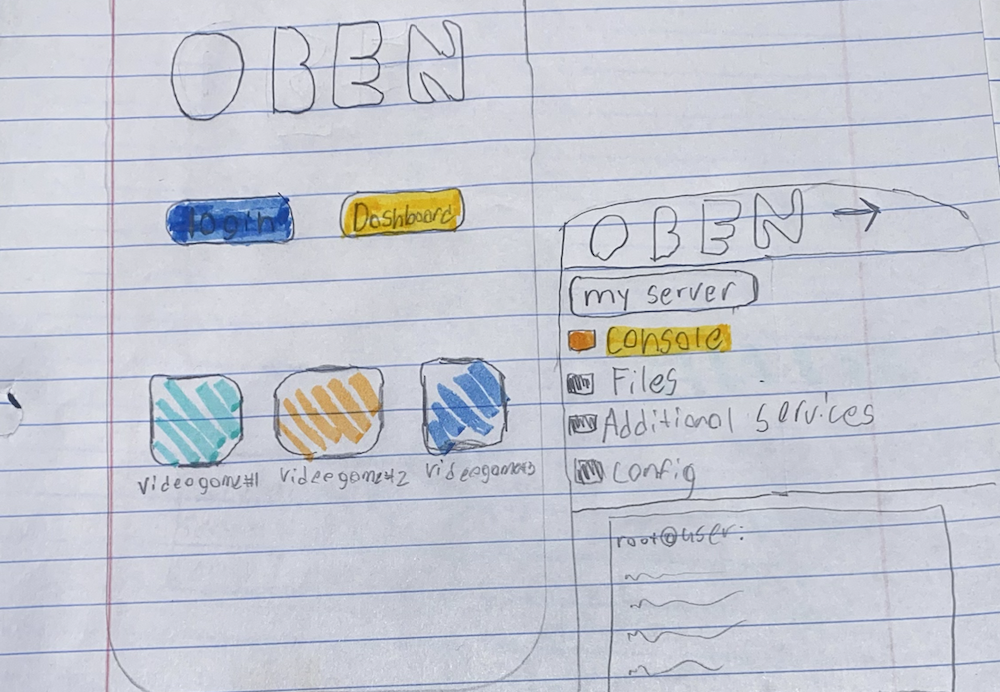 OBEN
login
Dashboard
videogame#1
videogame#2
videogame#3
OBEN →
my server
Console
Files
Additional services
config
root@user: